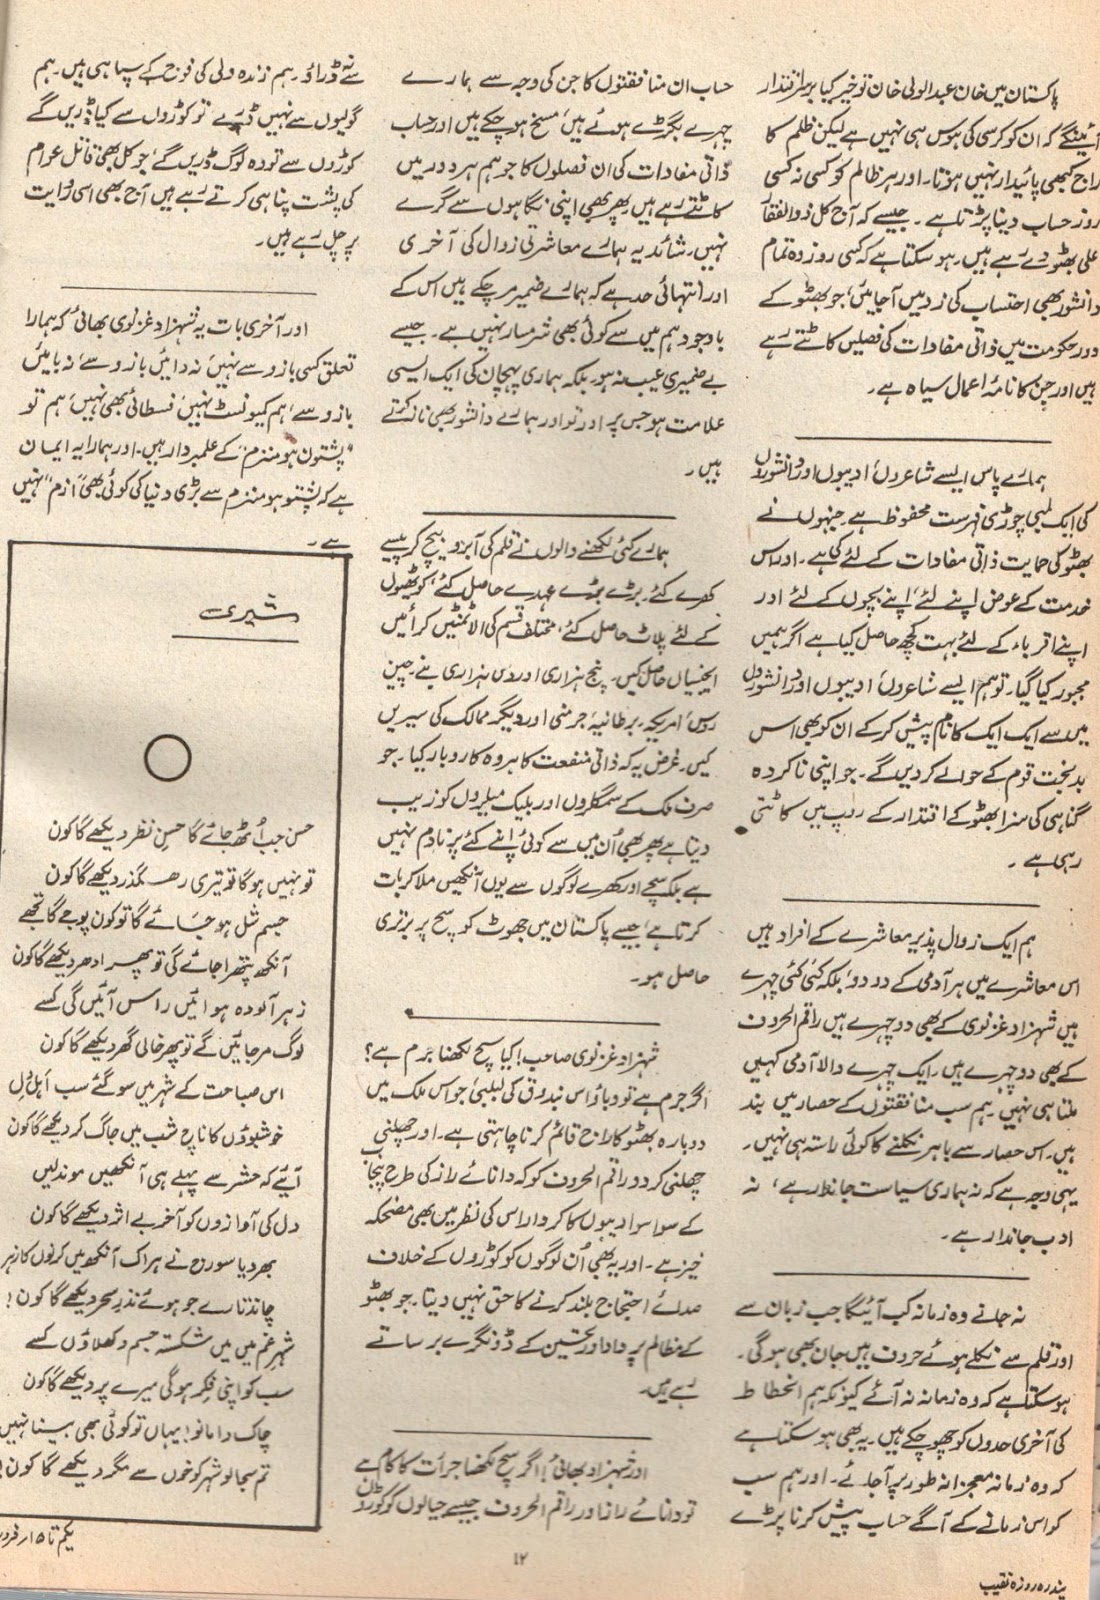 پاکستان میں خان عبدالولی خان تو خیر کیا برسراقتدار
آئینگے کہ ان کو کرسی کی ہوس ہی نہیں ہے لیکن ظلم کا
راج کبھی پائیدار نہیں ہوتا۔ اور ہر ظالم کو کسی نہ کسی
روز حساب دینا پڑتا ہے۔ جیسے کہ آج کل ذوالفقار
علی بھٹو دے رہے ہیں۔ ہو سکتا ہے کہ کسی روز وہ تمام
دانشور بھی احتساب کی زد میں آجائیں، جو بھٹو کے
دورحکومت میں ذاتی مفادات کی فصلیں کاٹتے رہے
ہیں اور جن کا نامۂ اعمال سیاہ ہے۔
ہمارے پاس ایسے شاعروں، ادیبوں اور دانشوروں
کی ایک لمبی چوڑی فہرست محفوظ ہے جنہوں نے
بھٹو کی حمایت ذاتی مفادات کے لئے کی ہے۔ اور اس
خدمت کے عوض اپنے لئے، اپنے بچوں کے لئے اور
اپنے اقرباء کے لئے بہت کچھ حاصل کیا ہے اگر ہمیں
مجبور کیا گیا۔ تو ہم ایسے شاعروں، ادیبوں اور دانشوروں
میں سے ایک ایک کا نام پیش کر کے ان کو بھی اس
بدبخت قوم کے حوالے کر دیں گے۔ جو اپنی ناکردہ
گناہی کی سزا بھٹو کے اقتدار کے روپ میں کاٹتی
رہی ہے۔
ہم ایک زوال پذیر معاشرے کے افراد ہیں
اس معاشرے میں ہر آدمی کے دو دو، بلکہ کئی کئی چہرے
ہیں شہزاد غزنوی کے بھی دو چہرے ہیں راقم الحروف
کے بھی دو چہرے ہیں۔ ایک چہرے والا آدمی کہیں
ملتا ہی نہیں۔ ہم سب منافقتوں کے حصار میں بند
ہیں۔ اس حصار سے باہر نکلنے کا کوئی راستہ ہی نہیں۔
یہی وجہ ہے کہ نہ ہماری سیاست جاندار ہے، نہ
ادب جاندار ہے۔
نہ جانے وہ زمانہ کب آئیگا جب زبان سے
اور قلم سے نکلے ہوئے حروف میں جان بھی ہوگی۔
ہو سکتا ہے کہ وہ زمانہ نہ آئے کیونکہ ہم انحطاط
کی آخری حدوں کو چھو چکے ہیں۔ یہ بھی ہو سکتا ہے
کہ وہ زمانہ معجزانہ طور پر آجائے۔ اور ہم سب
کو اس زمانے کے آگے حساب پیش کرنا پڑے
حساب ان منافقتوں کا جن کی وجہ سے ہمارے
چہرے بگڑے ہوئے ہیں، مسخ ہو چکے ہیں اور حساب
ذاتی مفادات کی ان فصلوں کا جو ہم ہر دور میں
کاٹتے رہے ہیں۔ پھر بھی اپنی نگاہوں سے گرے
نہیں۔ شائد یہ ہمارے معاشرتی زوال کی آخری
اور انتہائی حد ہے کہ ہمارے ضمیر مر چکے ہیں اس کے
باوجود ہم میں سے کوئی بھی شرمسار نہیں ہے۔ جیسے
بے ضمیری عیب نہ ہو۔ بلکہ ہماری پہچان کی ایک ایسی
علامت ہو جس پر اور تو اور ہمارے دانشور بھی ناز کرتے
ہیں۔
ہمارے کئی لکھنے والوں نے قلم کی آبرو بیچ کر پیسے
کھرے کئے۔ بڑے بڑے عہدے حاصل کئے، کوٹھیوں
کے لئے پلاٹ حاصل کئے، مختلف قسم کی الاٹمنٹیں کرائیں
ایجنسیاں حاصل کیں۔ پنج ہزاری اور دس ہزاری بنے۔ چین
روس، امریکہ۔ برطانیہ، جرمنی اور دیگر ممالک کی سیریں
کیں۔ غرض یہ کہ ذاتی منفعت کا ہر وہ کاروبار کیا۔ جو
صرف ملک کے سمگلروں اور بلیک میلروں کو زیب
دیتا ہے پھر بھی اُن میں سے کوئی اپنے کئے پر نادم نہیں
ہے بلکہ سچے اور کھرے لوگوں سے یوں آنکھیں ملا کر بات
کرتا ہے، جیسے پاکستان میں جھوٹ کو سچ پر برتری
حاصل ہو۔
شہزاد غزنوی صاحب! کیا سچ لکھنا جُرم ہے؟
اگر جرم ہے تو دباؤ اس بندوق کی لبلبی جو اس ملک میں
دوبارہ بھٹو کا راج قائم کرنا چاہتی ہے۔ اور چھلنی
چھلنی کر دو راقم الحروف کو کہ دانائے راز کی طرح پنجاب
کے سوا سو ادیبوں کا کردار اس کی نظر میں بھی مضحکہ
خیز ہے۔ اور یہ بھی اُن لوگوں کو کوڑوں کے خلاف
صدائے احتجاج بلند کرنے کا حق نہیں دیتا۔ جو بھٹو
کے مظالم پر داد و تحسین کے ڈونگرے برساتے
رہے ہیں۔
اور شہزاد بھائی! اگر سچ لکھنا جرأت کا کام ہے
تو دانائے راز اور راقم الحروف جیسے جیالوں کو کوڑوں
سے نہ ڈراؤ۔ ہم زندہ ولی کی فوج کے سپاہی ہیں۔ ہم
گولیوں سے نہیں ڈرے تو کوڑوں سے کیا ڈریں گے
کوڑوں سے تو وہ لوگ ڈریں گے، جو کل بھی قاتل عوام
کی پشت پناہی کرتے رہے ہیں آج بھی اسی روایت
پر چل رہے ہیں۔
اور آخری بات یہ شہزاد غزنوی بھائی، کہ ہمارا
تعلق کسی بازو سے نہیں، نہ دائیں بازو سے، نہ بائیں
بازو سے، ہم کمیونسٹ نہیں، فسطائی بھی نہیں، ہم تو
"پشتون ہومنزم" کے علمبردار ہیں۔ اور ہمارا یہ ایمان
ہے کہ پشتو ہومنزم سے بڑی دنیا کی کوئی بھی "ازم" نہیں
ہے۔
حسن جب اُٹھ جائے گا حسنِ نظر دیکھے گا کون
تو نہیں ہوگا تو تیری رھگذر دیکھے گا کون
جسم شل ہو جائے گا تو کون پوجے گا تجھے
آنکھ پتھرا جائے گی تو پھر ادھر دیکھے گا کون
زہر آلودہ ہوائیں راس آئیں گی کسے
لوگ مر جائیں گے تو پھر خالی گھر دیکھے گا کون
اس صباحت کے شہر میں سو گئے سب اہلِ دل
خوشبوؤں کا ناچ شب میں جاگ کر دیکھے گا کون
آیئے کہ حشر سے پہلے ہی آنکھیں موندلیں
دل کی آوازوں کو آخر بے اثر دیکھے گا کون
بھر دیا سورج نے ہر اک آنکھ میں کرنوں کا زہر
چاند تارے جو ہوئے نذرِ سحر دیکھے گا کون!
شہرِ غم میں میں شکستہ جسم دکھلاؤں کسے
سب کو اپنی فکر ہوگی میرے پر دیکھے گا کون
چاک دامانو! یہاں تو کوئی بھی بینا نہیں
تم سجالو شہر کو خوں سے مگر دیکھے گا کون!
یکم تا ۱۵ر
۱۲
پندرہ روزہ نقیب